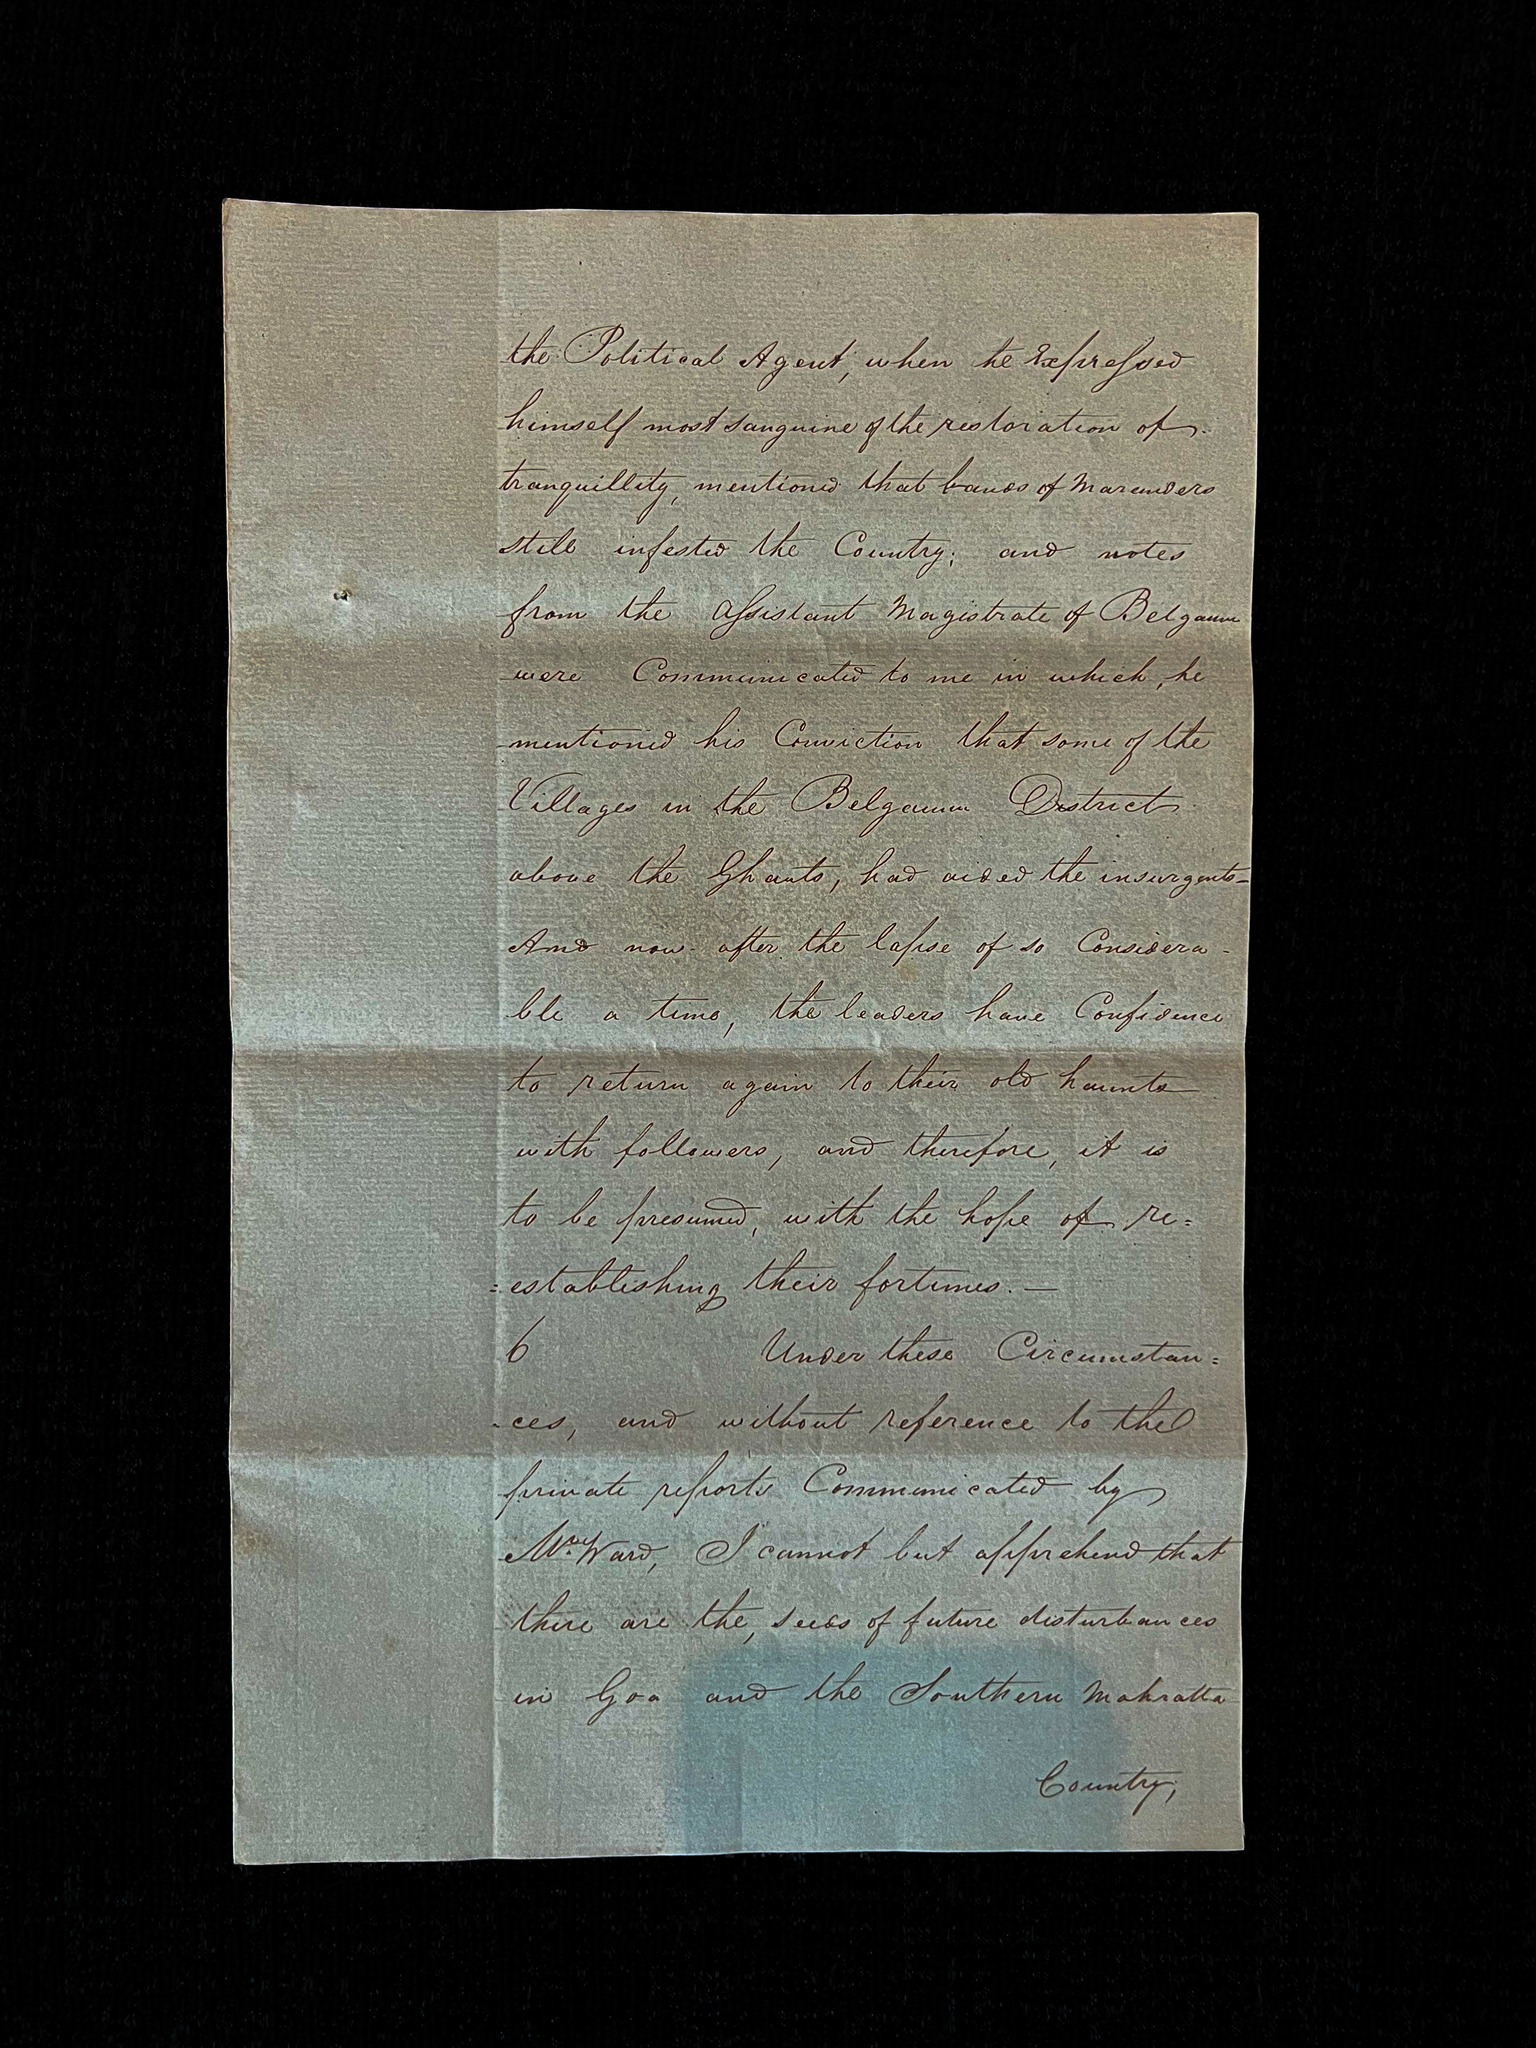 the Political Agent, when he Expressed
himself most sanguine of the restoration of
tranquillity, mentioned that bands of Marauders
still infested the Country; and notes
from the Assistant Magistrate of Belgaum
were Communicated to me in which, he
mentioned his Conviction that some of the
Villages in the Belgaum District
above the Ghauts, had aided the insurgents-
And now after the lapse of so Considera-
ble a time, the leaders have Confidence
to return again to their old haunts
with followers, and therefore, it is
to be presumed, with the hope of re=
=establishing their fortunes. —
6 Under these Circumstan=
-ces, and without reference to the
private reports Communicated by
Mr. Ward, I cannot but apprehend that
there are the, seeds of future disturbances
in Goa and the Southern Mahratta
Country,